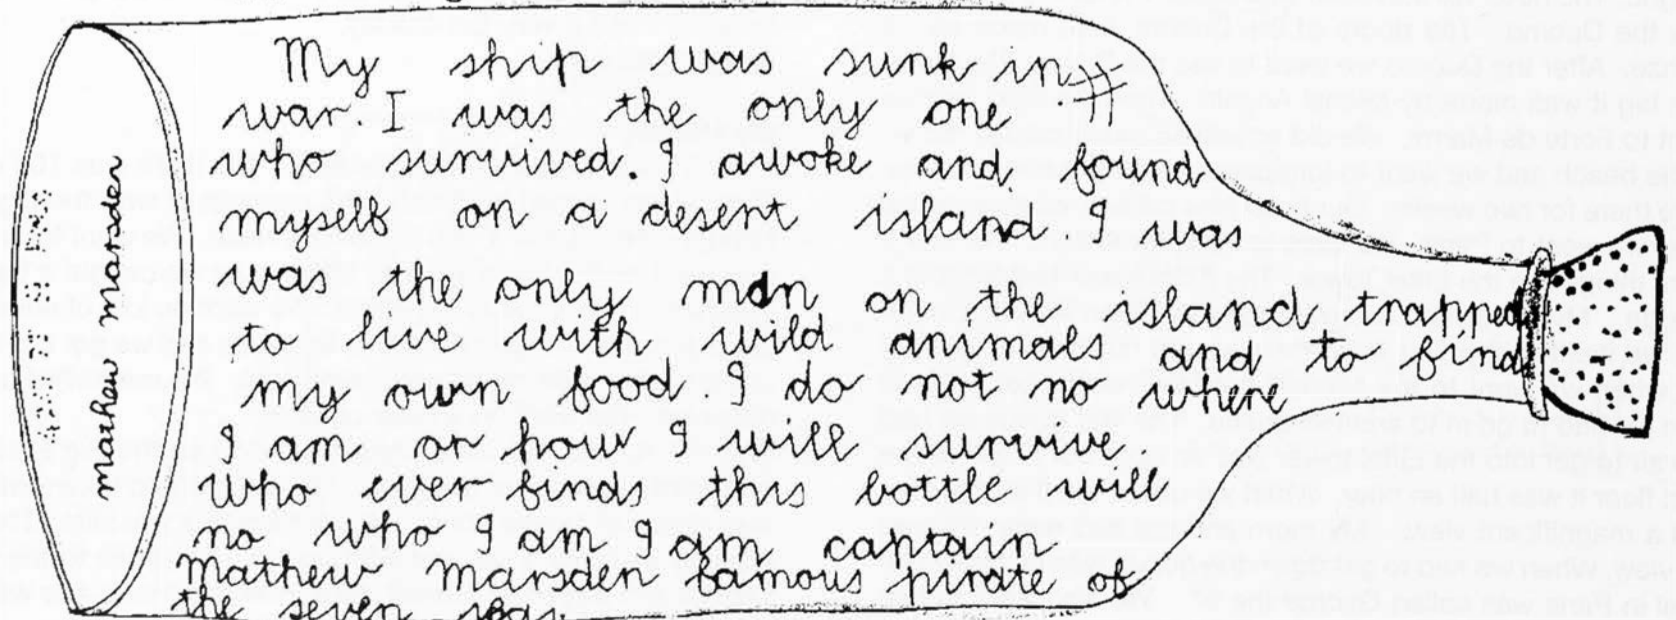 My ship was sunk in
war. I was the only one
who survived. I awoke and found
myself on a desent island I was
was the only man on the island trapped
to live with wild animals and to find
my own food. I do not no where
I am or how I will survive
who ever finds this bottle will
no who I am I am captain
mathew marsden famous pirate of
the seven seas
mathew marsden